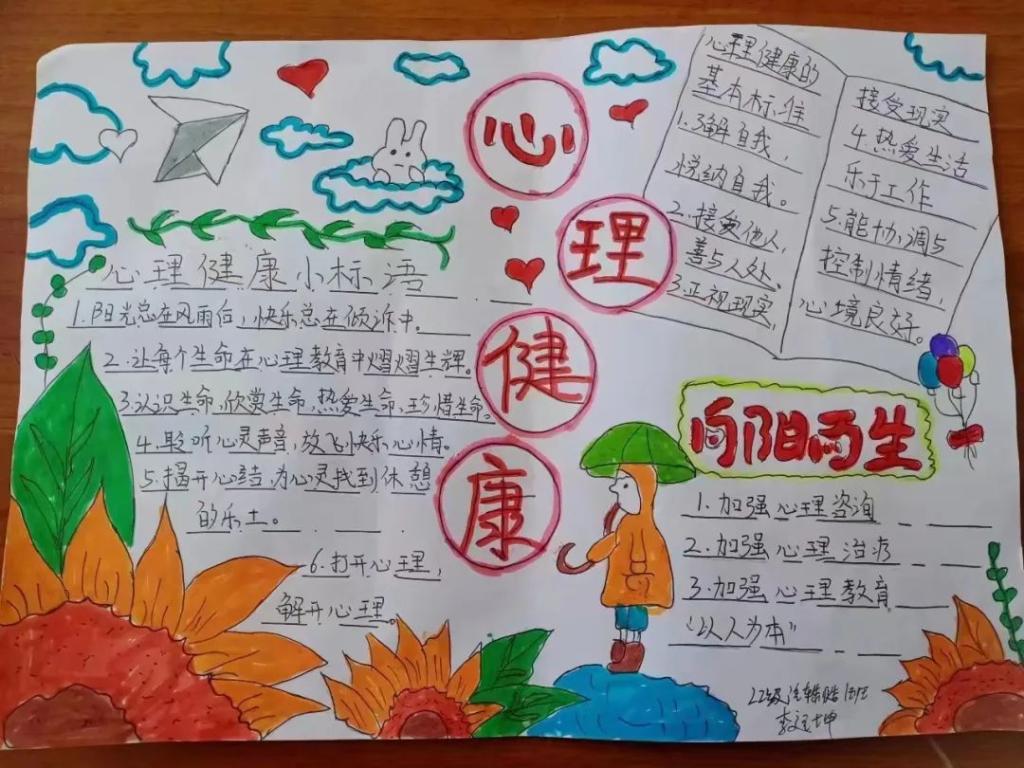 心理健康
心理健康小标语
1.阳光总在风雨后，快乐总在倾诉中。
2.让每个生命在心理教育中熠熠生辉。
3.认识生命，欣赏生命，热爱生命，珍惜生命。
4.聆听心灵声音，放飞快乐心情。
5.揭开心结，为心灵找到休憩
的乐土。
6.打开心理，
解开心理。
心理健康的
基本标准
1.了解自我，
悦纳自我。
2.接受他人，
善与人处。
3.正视现实，
接受现实
4.热爱生活
乐于工作
5.能协调与
控制情绪，
心境良好。
向阳而生
1.加强心理咨询
2.加强心理治疗
3.加强心理教育
“以人为本”
22级汽
李
坤